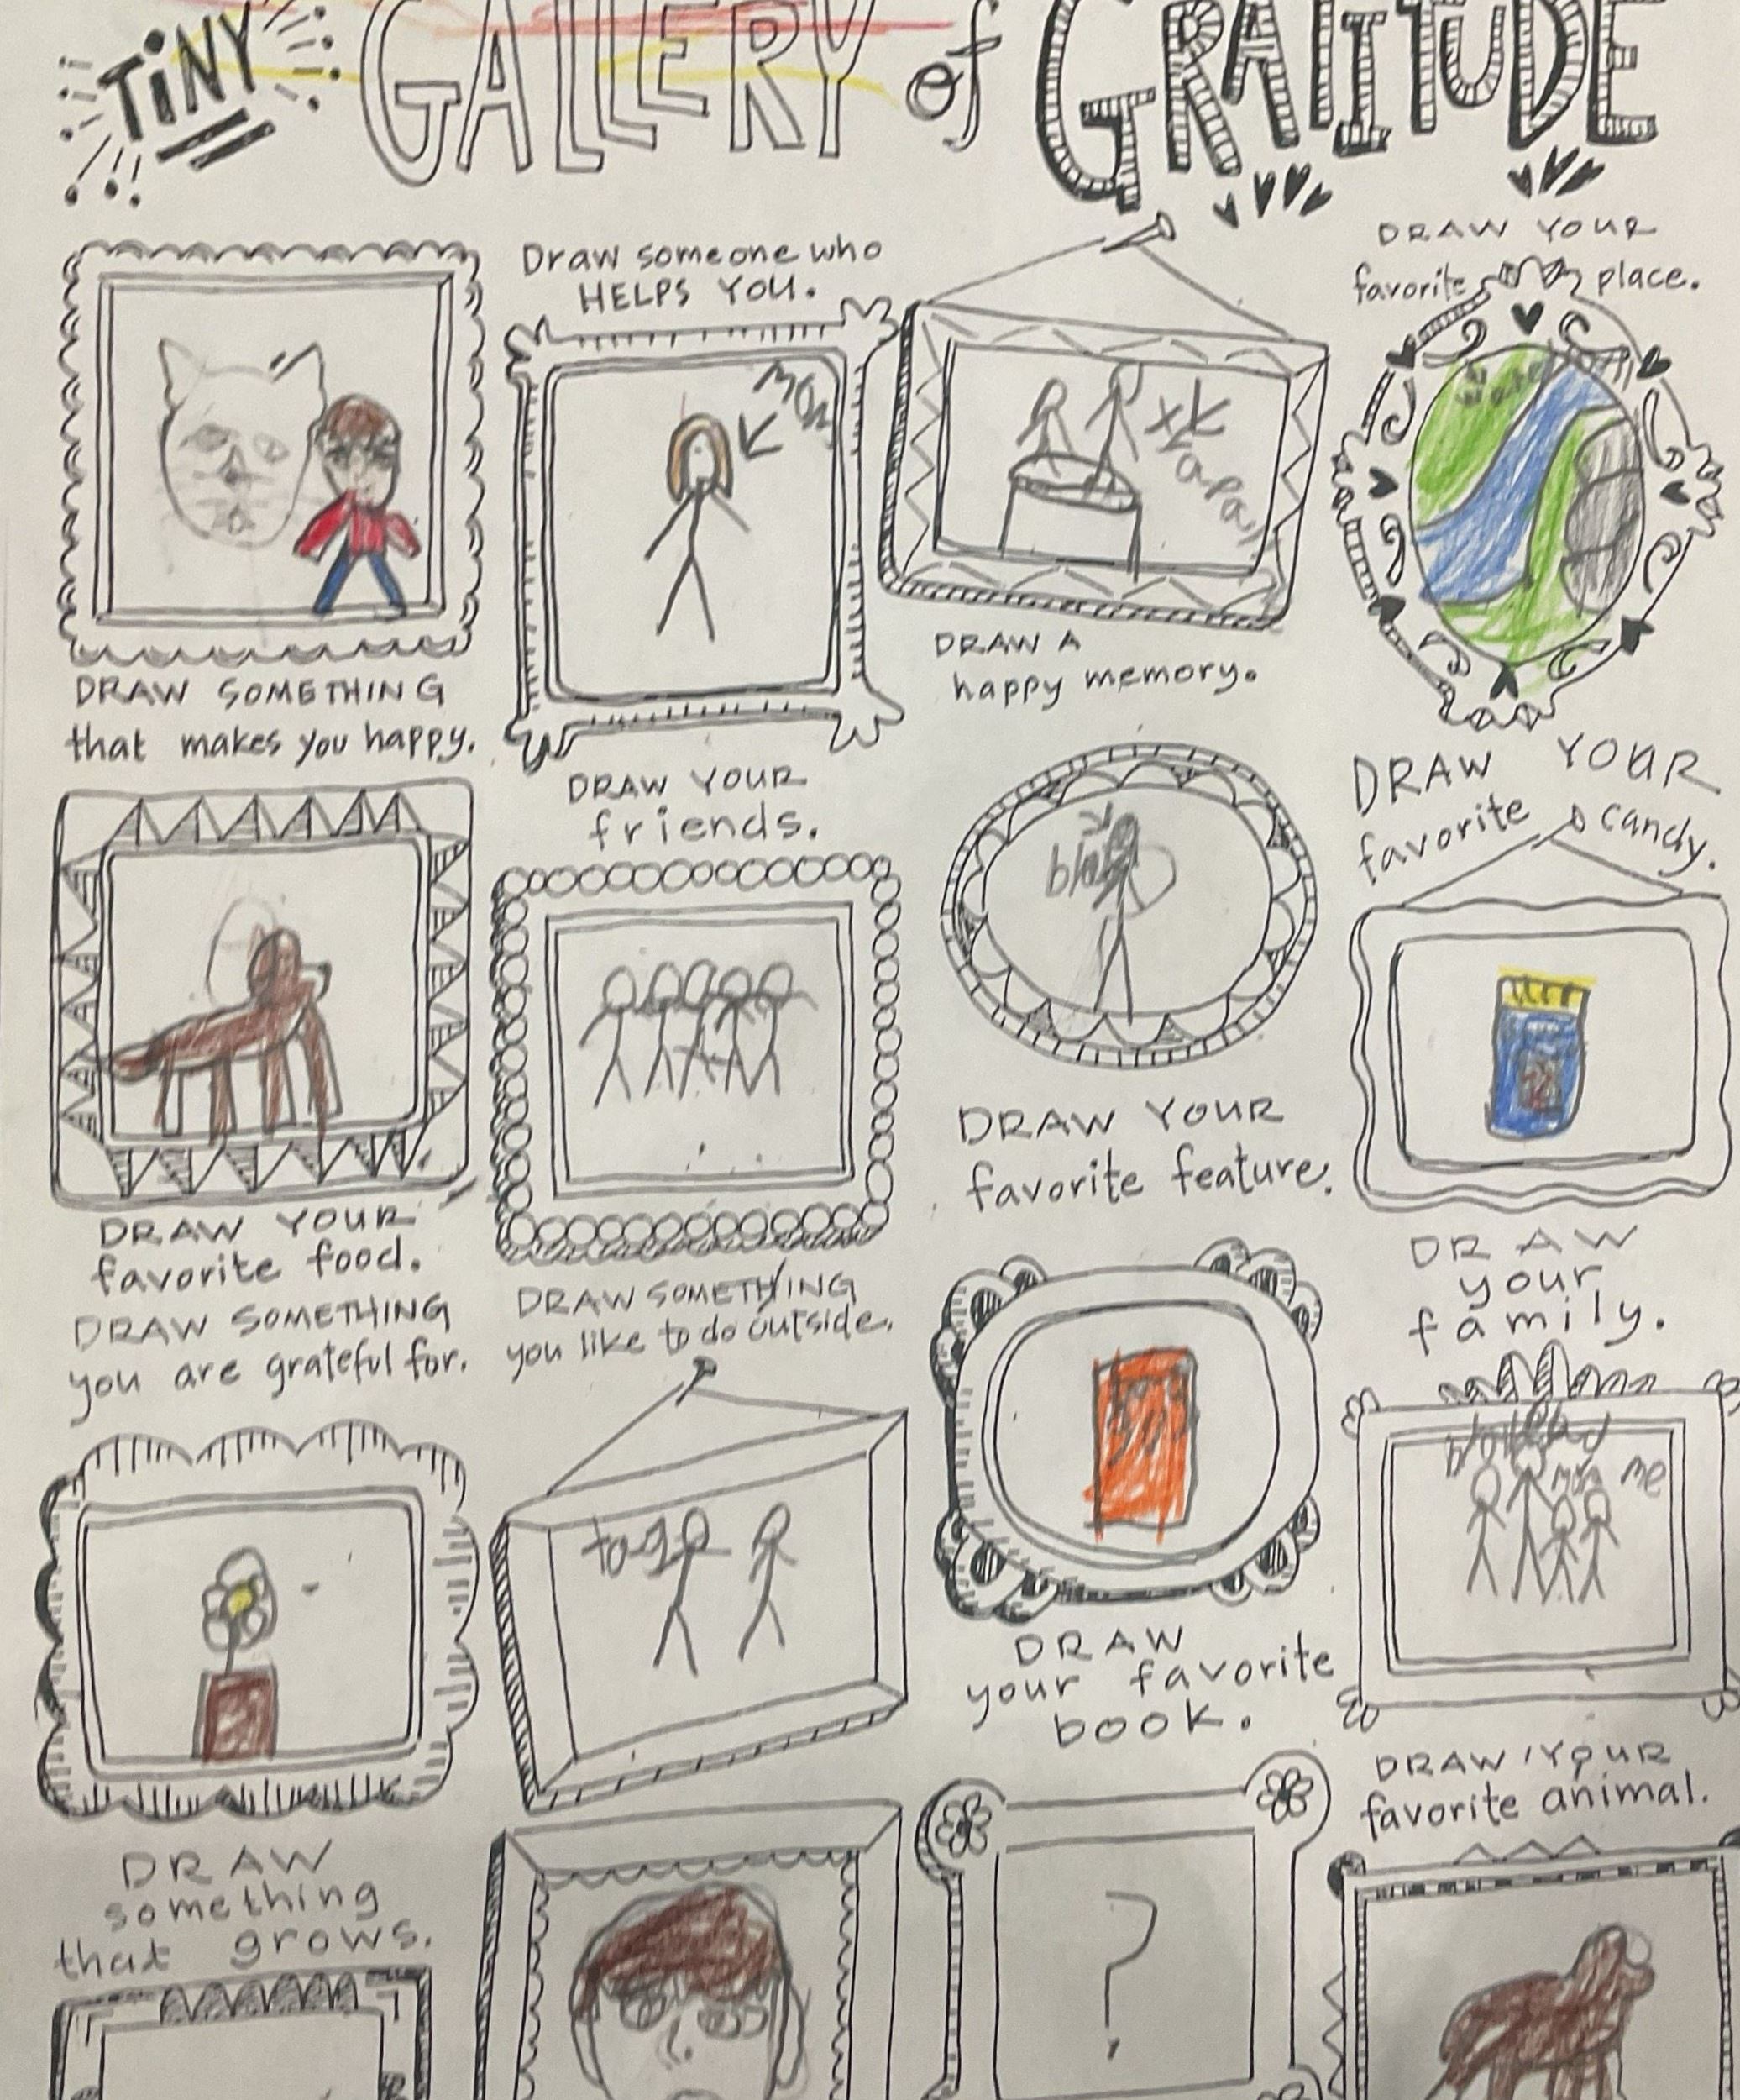 TiNY GALLERY of GRATITUDE
Draw someone who
HELPS YOU.
DRAW YOUR
favorite place.
DRAW SOMETHING
that makes you happy.
DRAW A
happy memory.
DRAW YOUR
friends.
DRAW YOUR
favorite candy.
DRAW YOUR
favorite food.
DRAW YOUR
favorite feature.
DRAW SOMETHING
you are grateful for.
DRAW SOMETHING
you like to do outside.
DRAW
your
family.
me
tag
DRAW
your favorite
book.
DRAW YOUR
favorite animal.
DRAW
something
that grows.
?